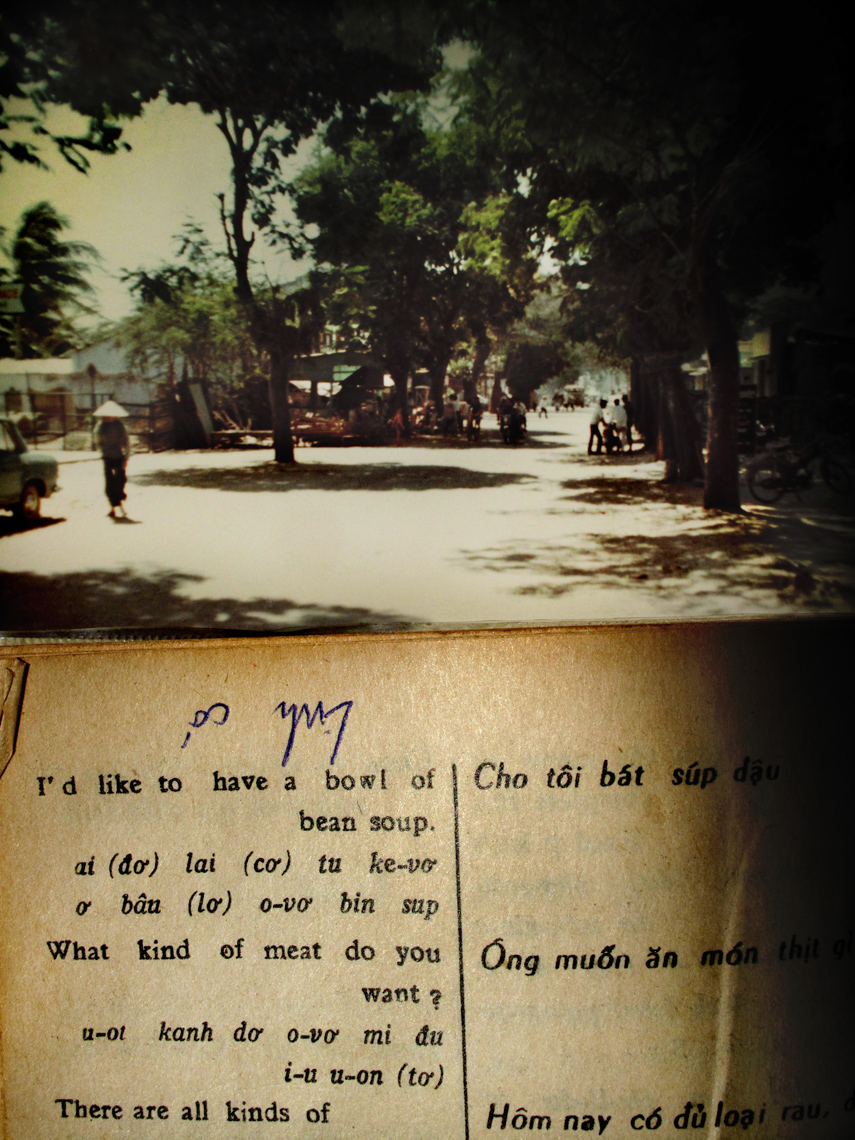 I'd like to have a bowl of
bean soup.
ai (đơ) lai (cơ) tu ke-vơ
ơ bâu (lơ) o-vơ bin sup
What kind of meat do you
want ?
u-ot kanh dơ o-vơ mi đu
i-u u-on (tơ)
There are all kinds of
Cho tôi bát súp đậu
Ông muốn ăn món thịt gì
Hôm nay có đủ loại rau,